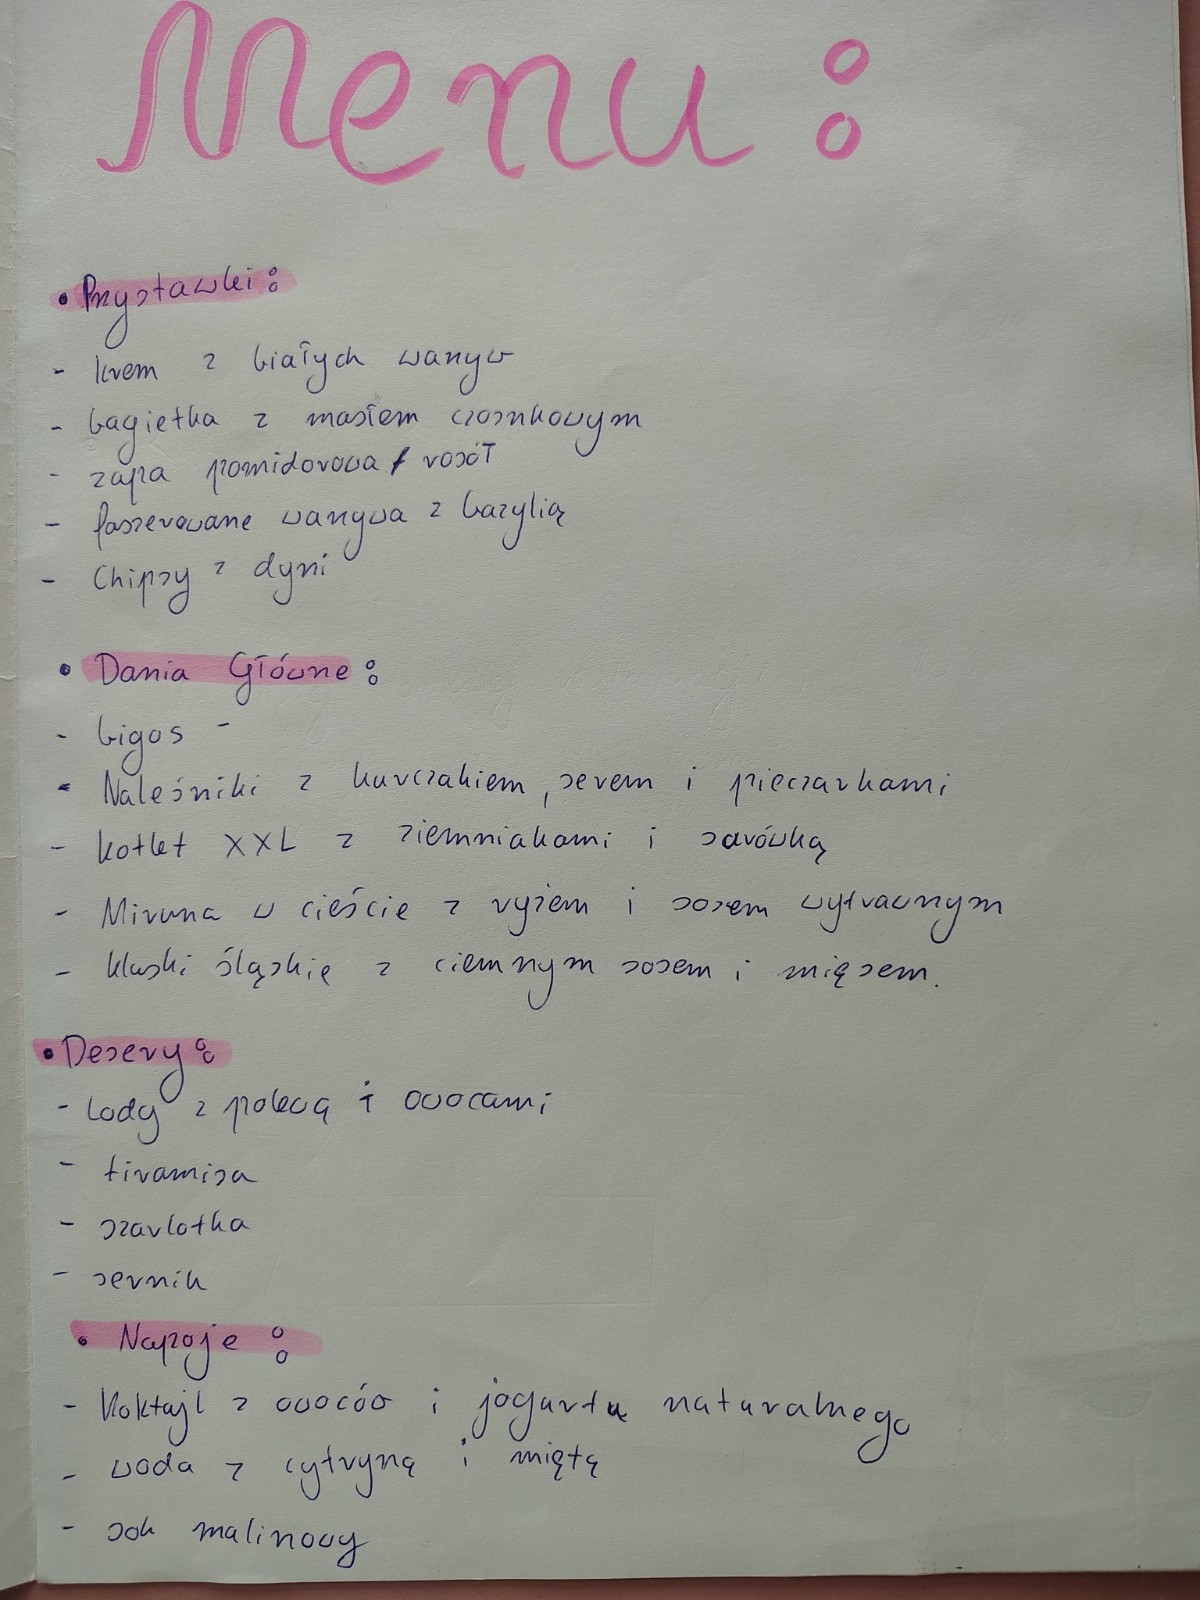 Menu:
• Przystawki:
- krem z białych warzyw
- bagietka z masłem czosnkowym
- zupa pomidorowa / rosół
- faszerowane warzywa z bazylią
- Chipsy z dyni
• Dania Główne:
- bigos -
- Naleśniki z kurczakiem, serem i pieczarkami
- kotlet XXL z ziemniakami i surówką
- Miruna w cieście z ryżem i sosem wytrawnym
- kluski śląskie z ciemnym sosem i mięsem.
• Desery:
- Lody z polewą i owocami
- tiramisu
- szarlotka
- sernik
• Napoje:
- Koktajl z owoców i jogurtu naturalnego
- woda z cytryną i miętą
- sok malinowy